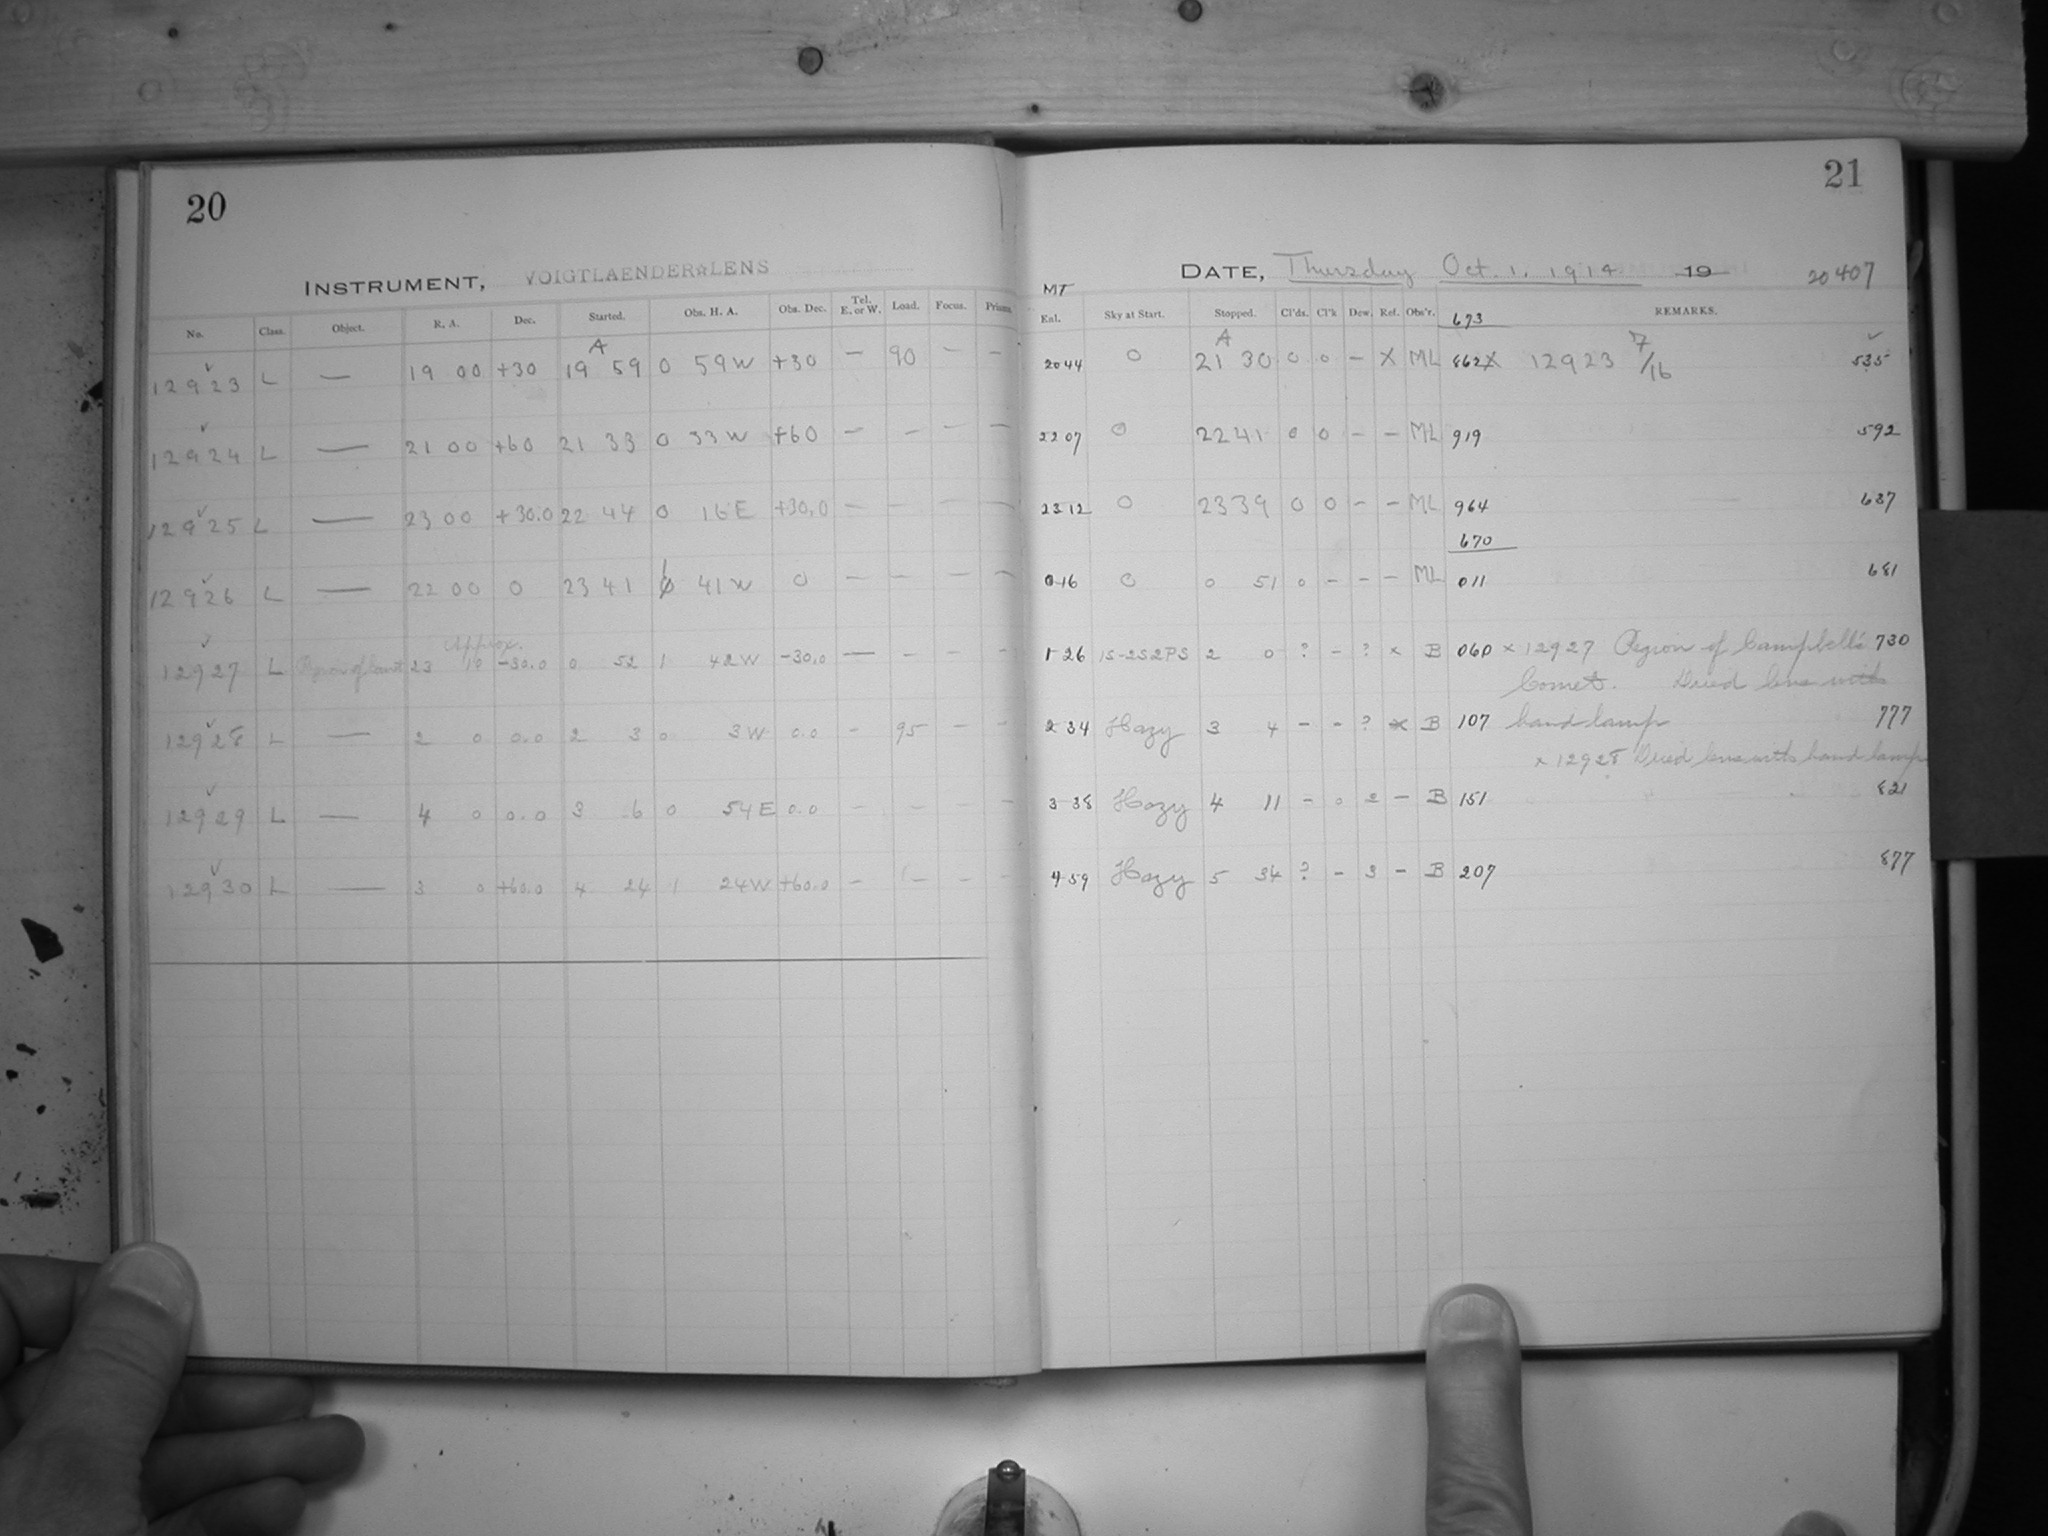 20
INSTRUMENT, VOIGTLAENDER☆LENS
No. Class. Object. R. A. Dec. Started. Obs. H. A. Obs. Dec. Tel. E. or W. Load. Focus. Prisms
12923 L — 19 00 +30 A 19 59 0 59 W +30 — 90 — —
12924 L — 21 00 +60 21 33 0 33 W +60 — — — —
12925 L — 23 00 +30.0 22 44 0 16 E +30.0 — — — —
12926 L — 22 00 0 23 41 41 W 0 — — — —
Approx.
12927 L Region of Comet 23 10 -30.0 0 52 1 42 W -30.0 — — — —
12928 L — 2 0 0.0 2 3 0 3 W 0.0 — 95 — —
12929 L — 4 0 0.0 3 6 0 54 E 0.0 — — — —
12930 L — 3 0 +60.0 4 24 1 24 W +60.0 — — — —
21
DATE, Thursday Oct. 1, 1914 19 20407
MT
Enl. Sky at Start. Stopped. Cl'ds. Cl'k Dew. Ref. Obs'r. 673 REMARKS.
2044 0 A 21 30 0 0 — X ML 862 X 12923 7/16 535
2207 0 22 41 0 0 — — ML 919 592
2312 0 23 39 0 0 — — ML 964 637
670
016 0 0 51 0 — — — ML 011 681
1 26 1S-2S2PS 2 0 ? — ? x B 060 x 12927 Region of Campbell's 730
Comet. Dried lens with
2 34 Hazy 3 4 — — ? x B 107 hand lamp 777
x 12928 Dried lens with hand lamp
3 38 Hazy 4 11 — 0 2 — B 151 821
4 59 Hazy 5 34 ? — 3 — B 207 877